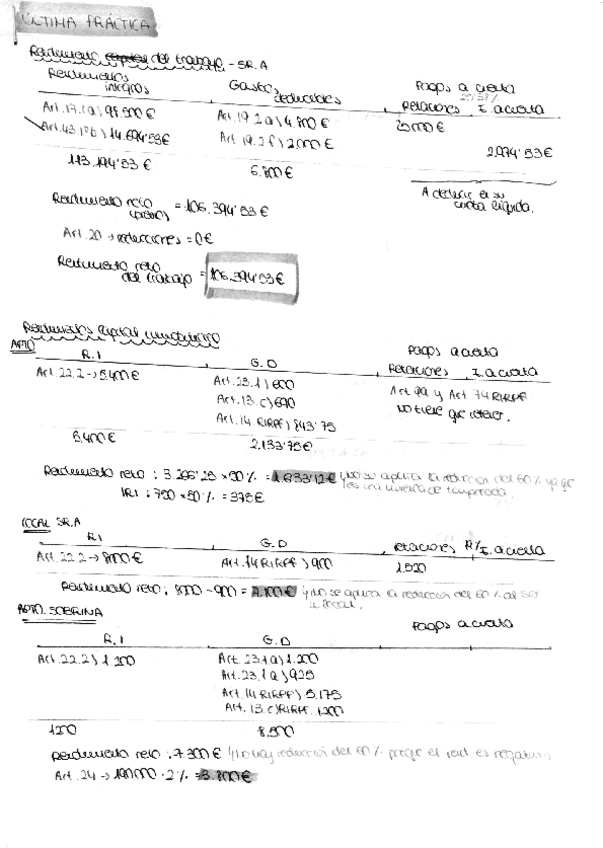 ÚLTIMA PRÁCTICA
Rendimiento capital del trabajo - SR. A
Rendimientos íntegros Gastos deducibles Pagos a cuenta
Retenciones I. a cuenta
Art. 17.1a) 98.500€ Art. 19.2a) 4.800€ 25000€
Art. 43.1ºb) 14.694'53€ Art. 19.2f) 2000€ 2.974'53€
113.194'53€ 6.800€
A deducir en su cuota líquida.
Rendimiento neto = 106.394'53€
Art. 20 → reducciones = 0€
Rendimiento neto del trabajo = 106.394'53€
Rendimientos capital inmobiliario
APTO
R.I G.D Pagos a cuenta
Retenciones I. a cuenta
Art. 22.2 → 5.400€ Art. 23.1) 600 Art. 99 y Art. 74 RIRPF
Art. 13.c) 690 No tiene que retener.
Art. 14. RIRPF) 843'75
5.400€ 2.133'75€
Rendimiento neto: 3.266'25 × 50% = 1.633'12€ y no se aplica la reducción del 60% ya que
es una vivienda de temporada.
IRI: 750 × 50% = 375€
LOCAL SR. A
R.I G.D retenciones I. a cuenta
Art. 22.2 → 8000€ Art. 14 RIRPF) 900 1.520
Rendimiento neto: 8000 - 900 = 7.100€ y no se aplica la reducción del 60% al ser
un local.
APTO. SOBRINA Pagos a cuenta
R.I G.D
Art. 22.2) 1.200 Art. 23.1a) 1.200
Art. 23.1a) 925
Art. 14 RIRPF) 5.175
Art. 13.c) RIRPF. 1200
1200 8.500
Rendimiento neto: -7.300€ y no hay reducción del 60% porque el rend. es negativo
Art. 24 → 190.000 · 2% = 3.800€